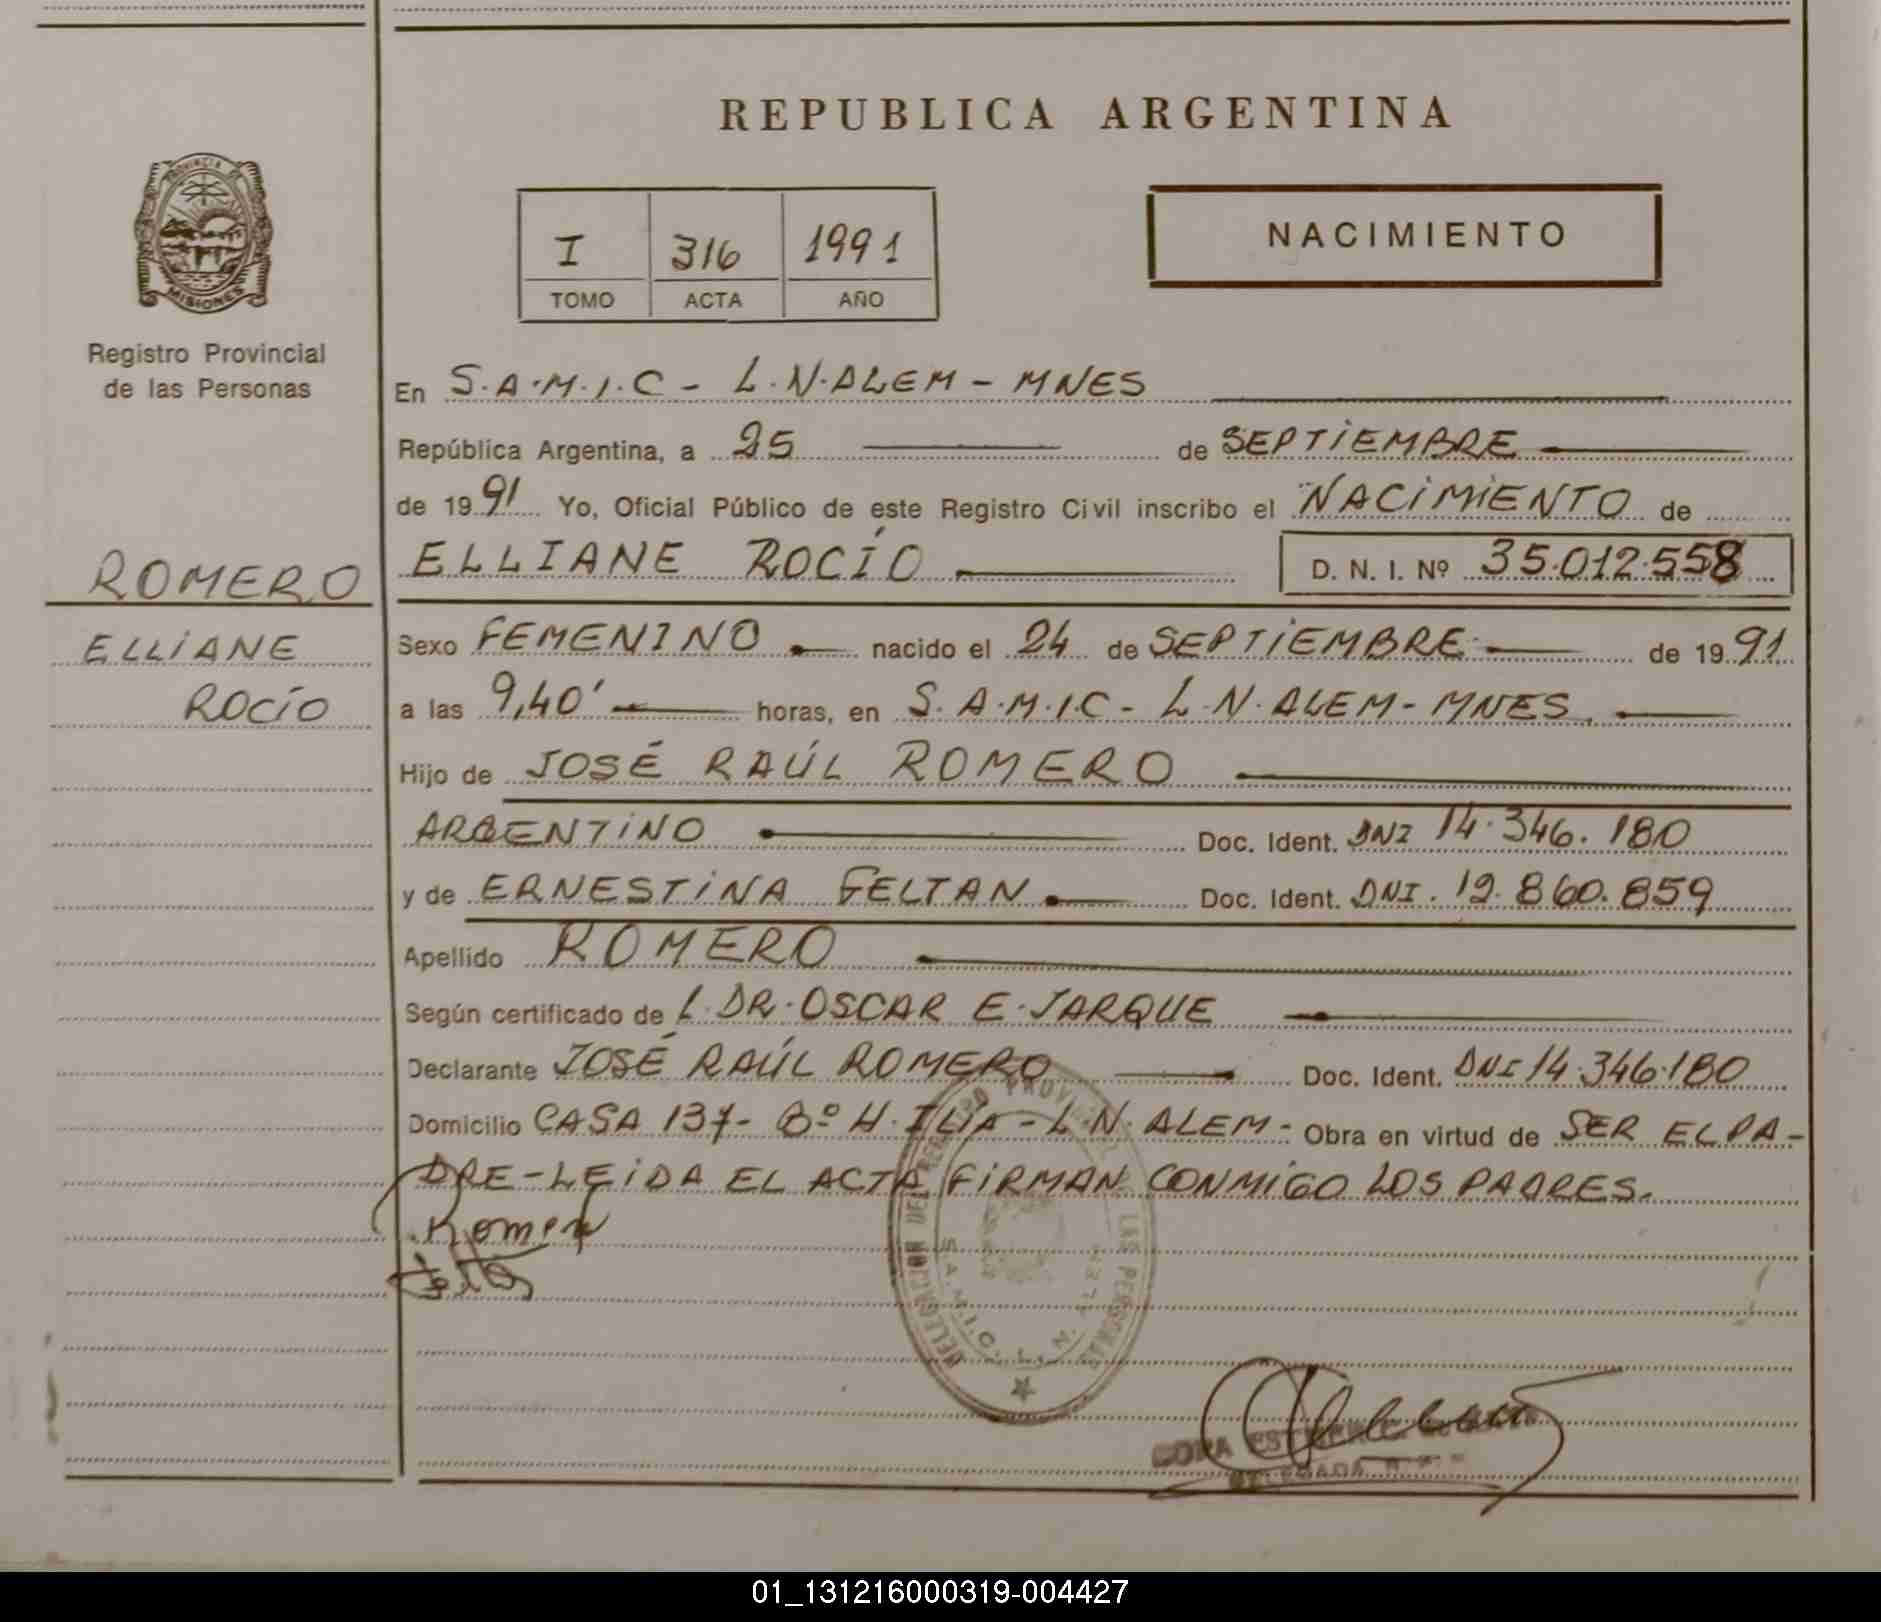 REPUBLICA ARGENTINA
PROVINCIA DE
MISIONES
Registro Provincial
de las Personas
I 316 1991
TOMO ACTA AÑO
NACIMIENTO
En S.A.M.I.C - L.N.ALEM - MNES
República Argentina, a 25 de SEPTIEMBRE
de 1991 Yo, Oficial Público de este Registro Civil inscribo el NACIMIENTO de
ROMERO
ELLIANE ROCÍO D. N. I. Nº 35.012.558
ELLIANE
ROCÍO
Sexo FEMENINO nacido el 24 de SEPTIEMBRE de 1991
a las 9,40' horas, en S.A.M.I.C - L.N.ALEM - MNES.
Hijo de JOSÉ RAÚL ROMERO
ARGENTINO Doc. Ident. DNI 14.346.180
y de ERNESTINA FELTAN Doc. Ident. DNI. 12.860.859
Apellido ROMERO
Según certificado de L. DR. OSCAR E. JARQUE
Declarante JOSÉ RAÚL ROMERO Doc. Ident. DNI 14.346.180
Domicilio CASA 137- Bº H. ILIA - L.N. ALEM - Obra en virtud de SER EL PA-
DRE - LEIDA EL ACTA FIRMAN CONMIGO LOS PADRES.
DELEGACION DEL REGISTRO PROVINCIAL LAS PERSONAS
S.A.M.I.C. L. N. ALEM
ESTHER
DELEGADA
01_131216000319-004427